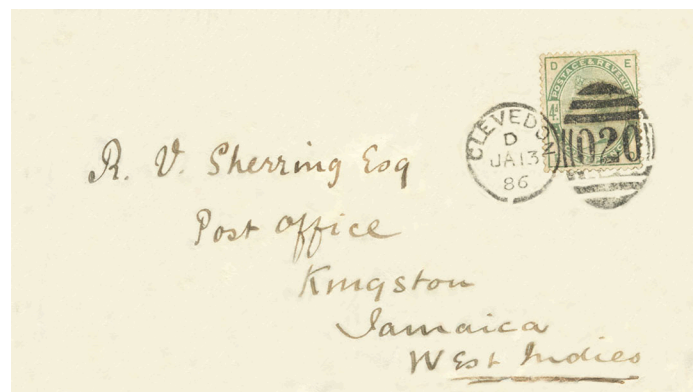 D E
POSTAGE & REVENUE
CLEVEDON
D
JA 13
86
020
R. V. Sherring Esq
Post Office
Kingston
Jamaica
West Indies